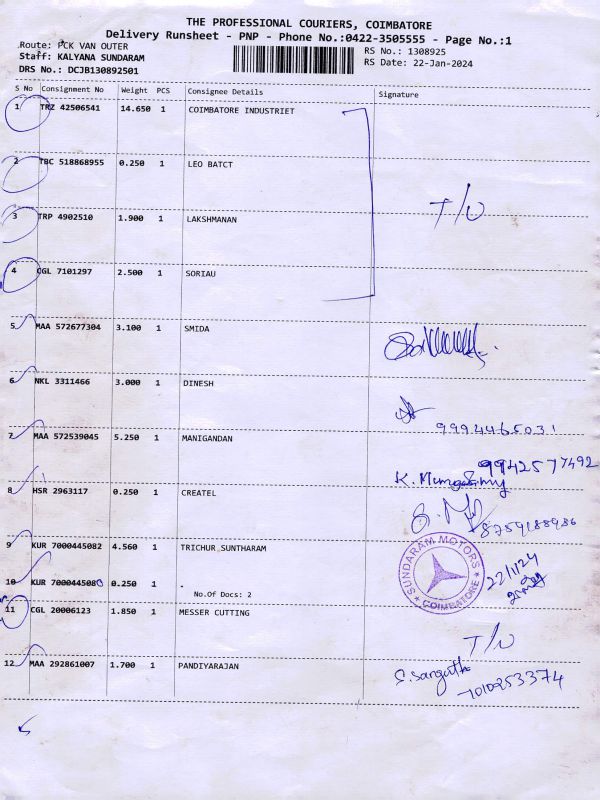 THE PROFESSIONAL COURIERS, COIMBATORE
Delivery Runsheet - PNP - Phone No.:0422-3505555 - Page No.:1
Route: PCK VAN OUTER
RS No.: 1308925
Staff: KALYANA SUNDARAM
RS Date: 22-Jan-2024
DRS No.: DCJB130892501
S No Consignment No Weight PCS Consignee Details Signature
1 TRZ 42506541 14.650 1 COIMBATORE INDUSTRIET
2 TBC 518868955 0.250 1 LEO BATCT
T/O
3 TRP 4902510 1.900 1 LAKSHMANAN
4 CGL 7101297 2.500 1 SORIAU
5 MAA 572677304 3.100 1 SMIDA
6 NKL 3311466 3.000 1 DINESH
9994465031
7 MAA 572539045 5.250 1 MANIGANDAN
9942577492
K. Murugasamy
8 HSR 2963117 0.250 1 CREATEL
8759188936
9 KUR 7000445082 4.560 1 TRICHUR SUNTHARAM
SUNDARAM MOTORS
COIMBATORE
22/1/24
10 KUR 7000445080 0.250 1 -
No.Of Docs: 2
11 CGL 20006123 1.850 1 MESSER CUTTING
T/O
12 MAA 292861007 1.700 1 PANDIYARAJAN
7010253374